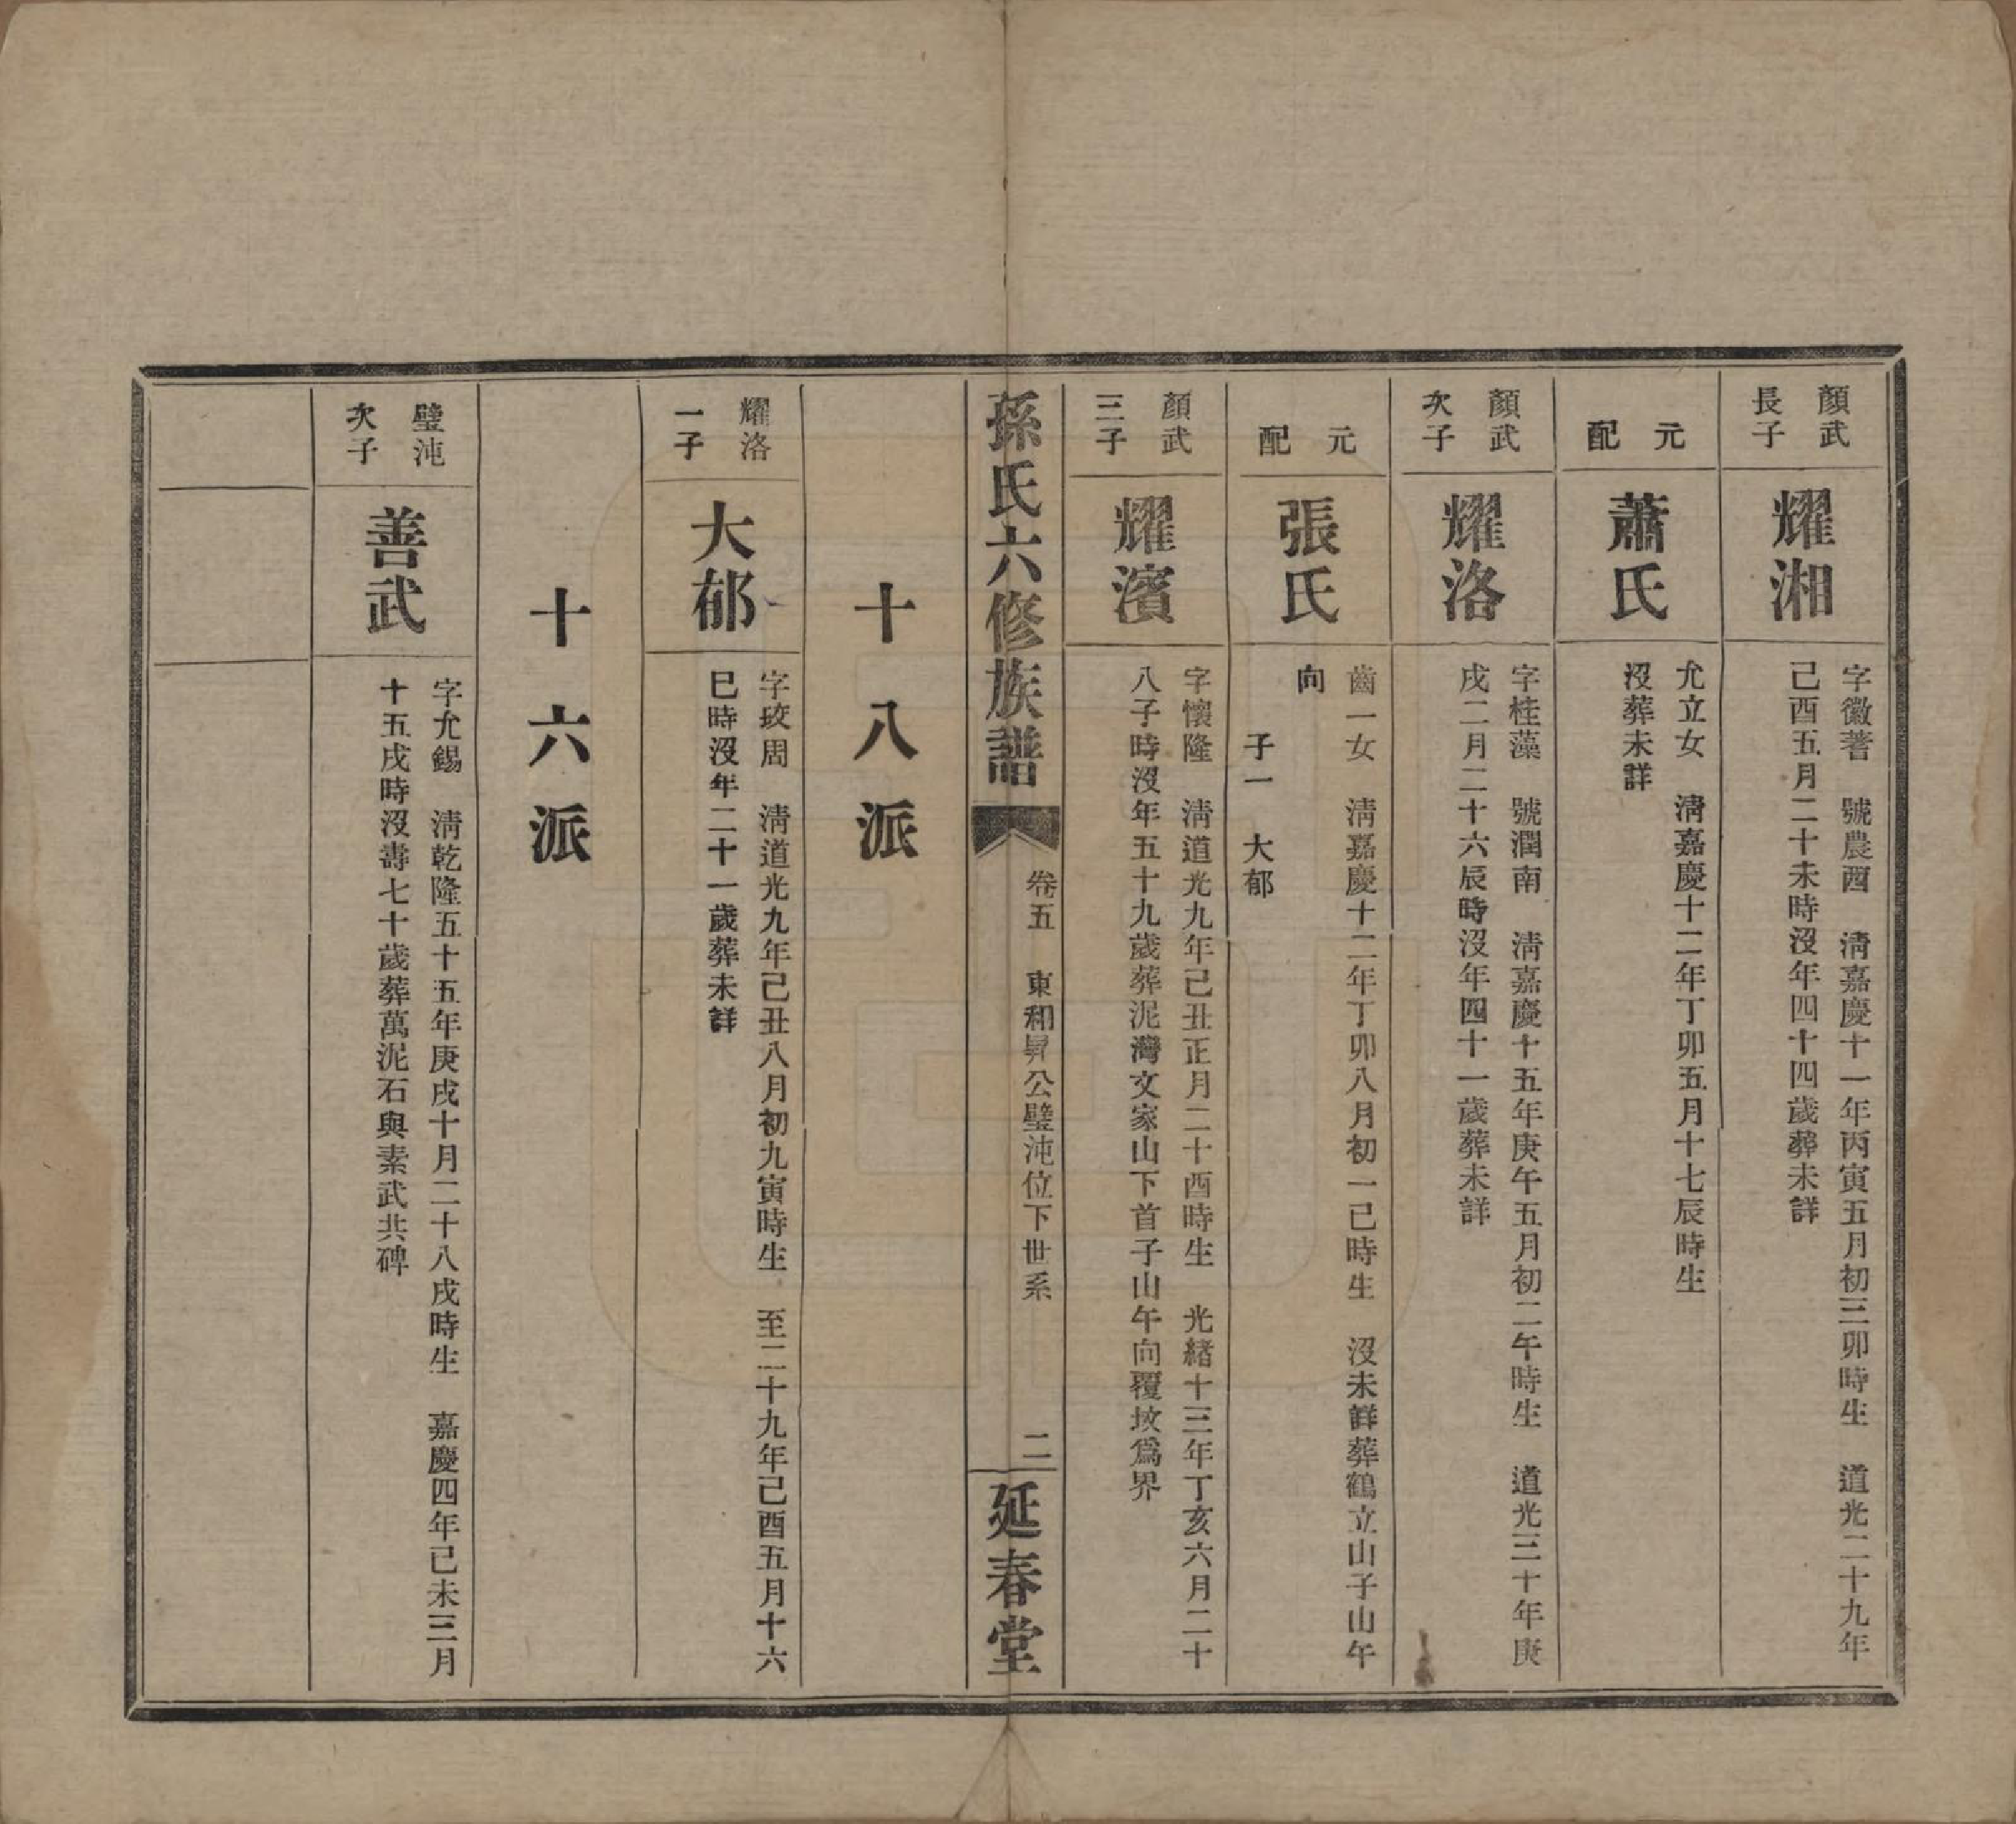 顏武
長子
耀湘
字徽著　號農酉　淸嘉慶十一年丙寅五月初三卯時生　道光二十九年
己酉五月二十未時沒年四十四歲葬未詳
元
配
蕭氏
允立女　淸嘉慶十二年丁卯五月十七辰時生
沒葬未詳
顏武
次子
耀洛
字桂藻　號潤南　淸嘉慶十五年庚午五月初二午時生　道光三十年庚
戌二月二十六辰時沒年四十一歲葬未詳
元
配
張氏
齒一女　淸嘉慶十二年丁卯八月初一己時生　沒未詳葬鶴立山子山午
向
子一　大郁
顏武
三子
耀濱
字懷隆　淸道光九年己丑正月二十酉時生　光緖十三年丁亥六月二十
八子時沒年五十九歲葬泥灣文家山下首子山午向覆坟爲界
孫氏六修族譜
卷五　東和昇公璧沌位下世系
二
延春堂
十八派
耀洛
一子
大郁
字玫周　淸道光九年己丑八月初九寅時生　至二十九年己酉五月十六
巳時沒年二十一歲葬未詳
十六派
璧沌
次子
善武
字允錫　淸乾隆五十五年庚戌十月二十八戌時生　嘉慶四年已未三月
十五戌時沒壽七十歲葬萬泥石與素武共碑